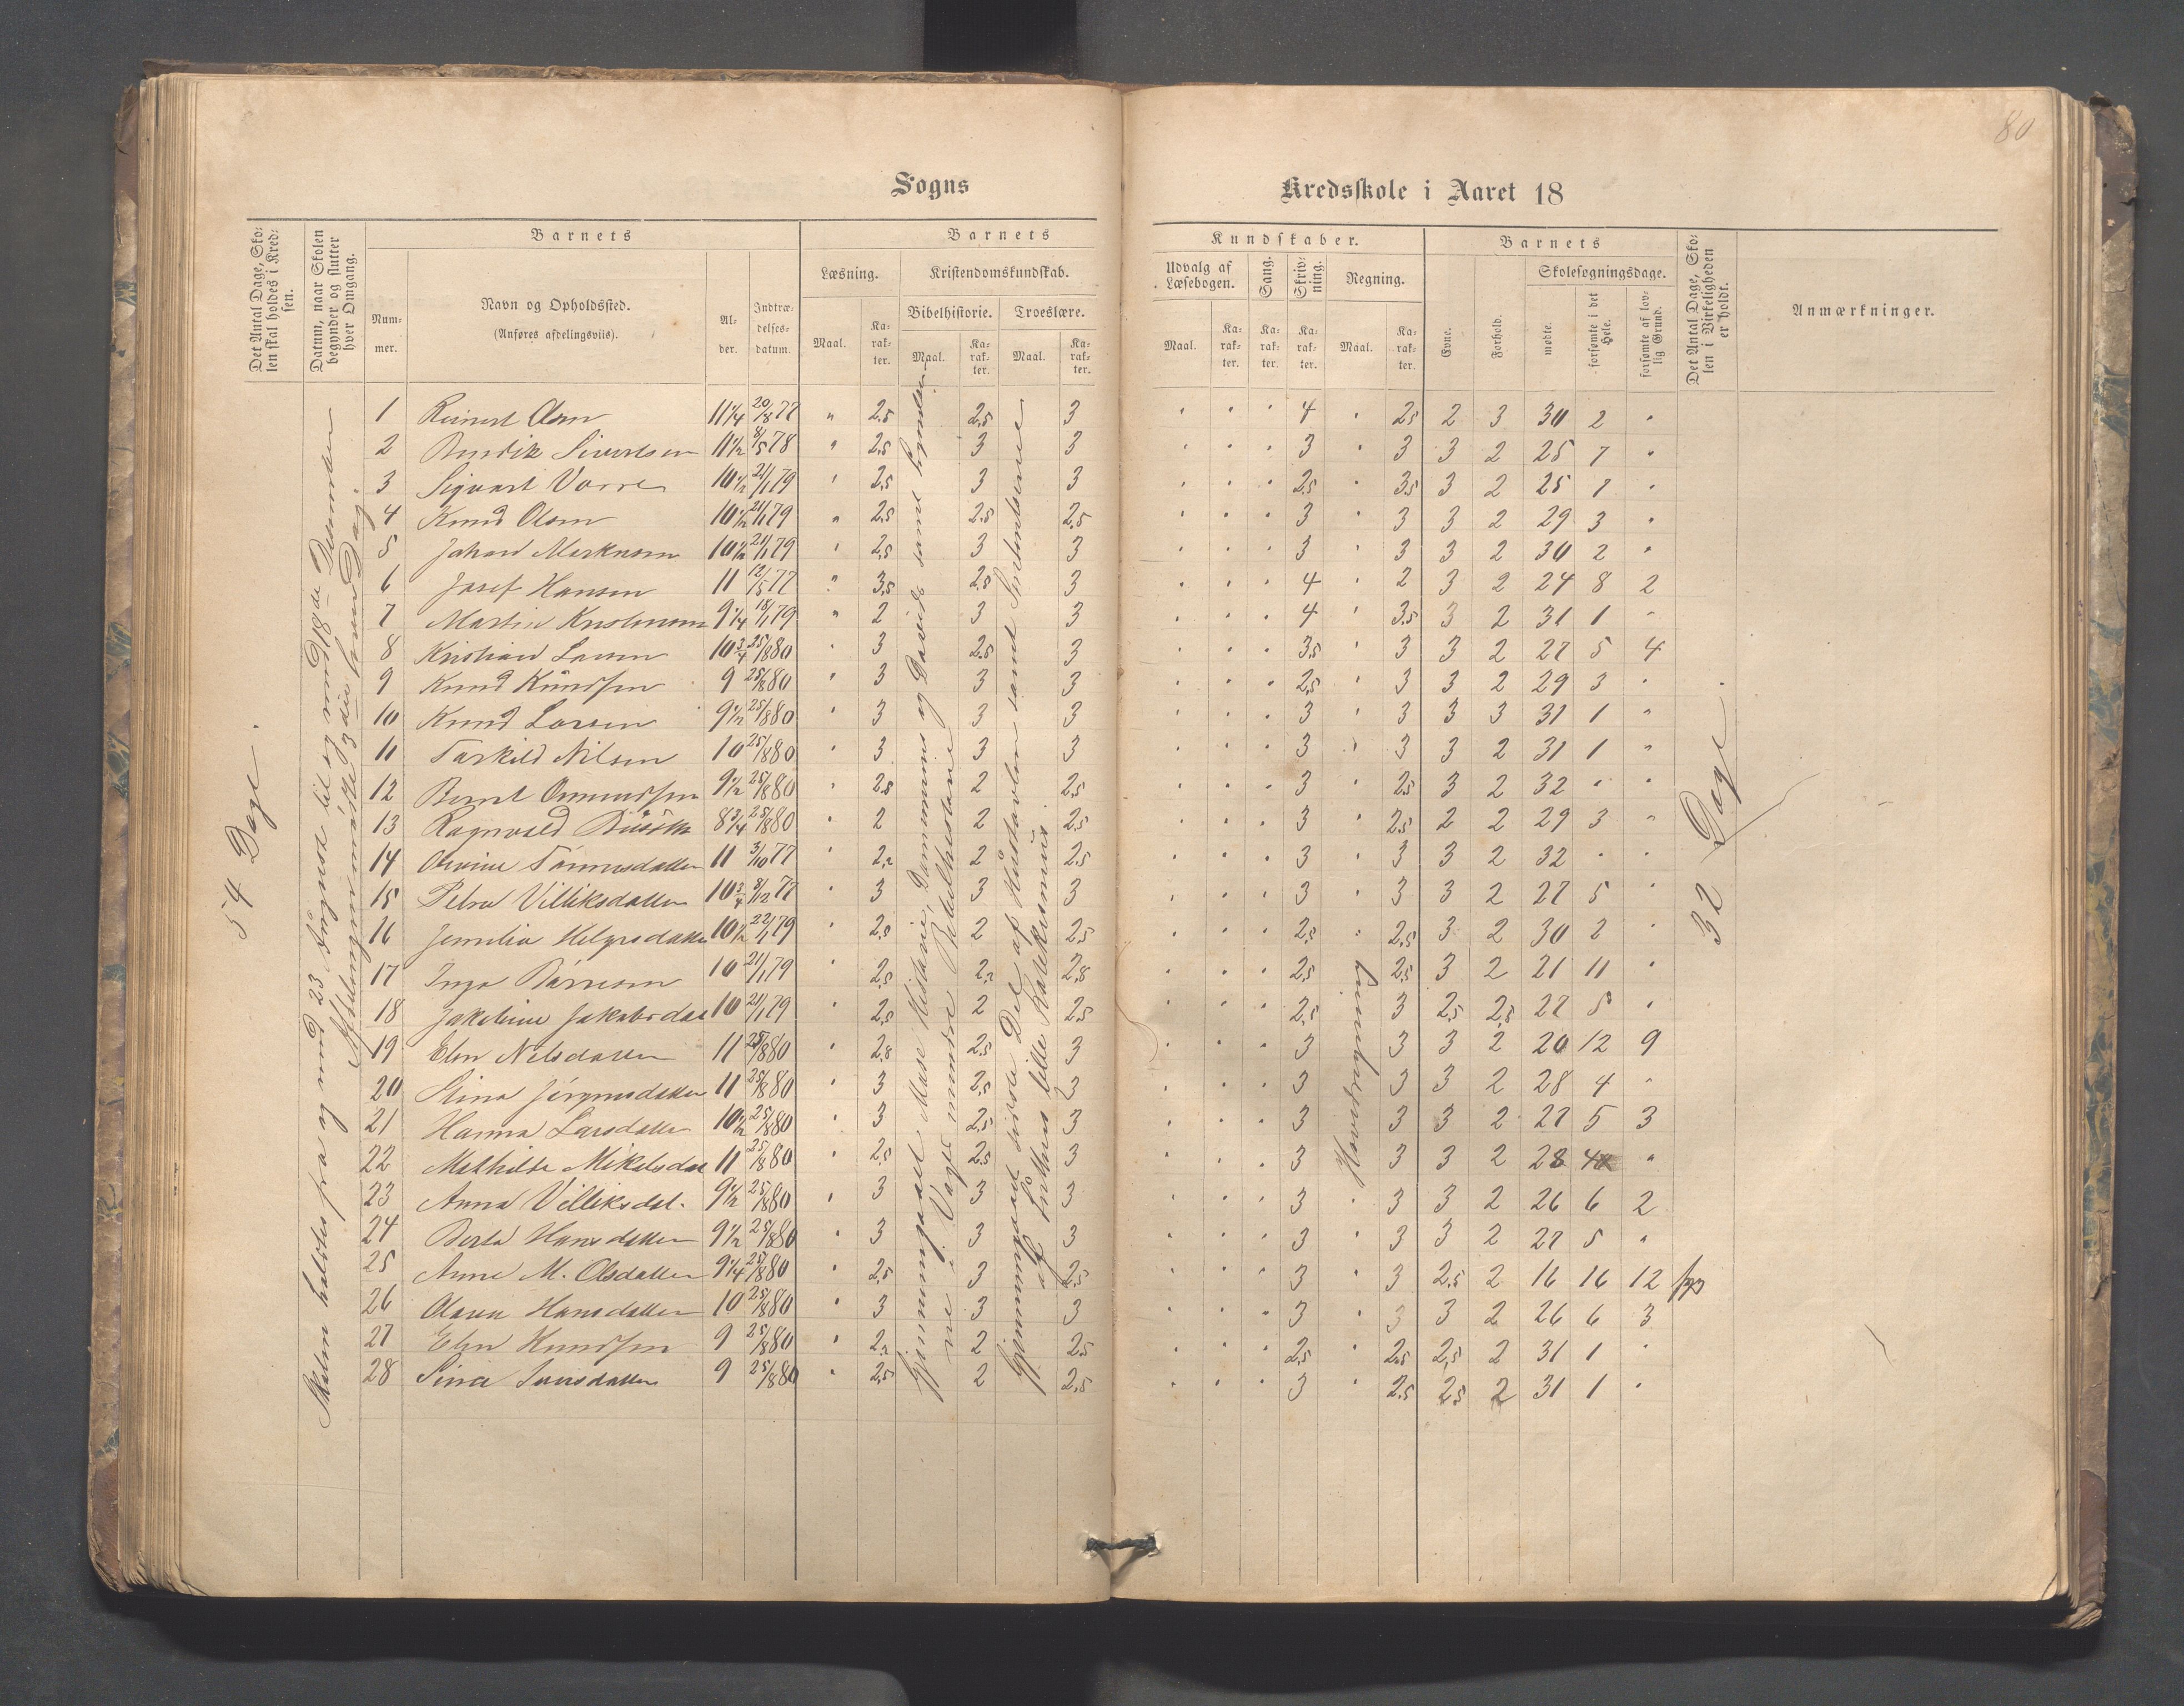 80
Sogns Kredsskole i Aaret 18
Det Antal Dage, Skolen skal holdes i Kredsen.
Datum, naar Skolen begynder og slutter hver Omgang.
Barnets
Nummer.
Navn og Opholdssted.
(Anføres afdelingsviis).
Alder.
Indtrædelsesdatum.
Barnets Kundskaber.
Læsning.
Maal. Karakter.
Kristendomskundskab.
Bibelhistorie. Troeslære.
Maal. Karakter. Maal. Karakter.
Udvalg af Læsebogen.
Maal. Karakter.
Sang. Karakter.
Skrivning. Karakter.
Regning.
Maal. Karakter.
Barnets
Evne. Forhold.
Skolesøgningsdage.
mødte. forsømte i det Hele. forsømte af lovlig Grund.
Det Antal Dage, Skolen i Virkeligheden er holdt.
Anmærkninger.
54 Dage.
Skolen holdtes fra og med 23 August til og med 18de December
Afdelingen mødte 3die hver Dag.
Gjennemgaaet
Gjennemgaaet sidste Del af
af Luthers lille Katekismus
Hovedregning
32 Dage.
1 Reinert Olsen 11 1/4 20/8 77 " 2,5 2,5 3 " " " 4 " 2,5 2 3 30 2 "
2 Bendik Sivertsen 11 1/2 8/5 78 " 2,5 3 3 " " " 3 " 3 3 2 25 7 "
3 Sigvart Vorre 10 1/2 21/1 79 " 2,5 3 3 " " " 2,5 " 3,5 3 2 25 7 "
4 Knud Olsen 10 1/2 21/1 79 " 2,5 2,5 2,5 " " " 3 " 3 3 2 29 3 "
5 Johan 10 1/2 21/1 79 " 2,5 3 3 " " " 3 " 3 3 2 30 2 "
6 Josef Hansen 11 12/5 77 " 3,5 2,5 3 " " " 4 " 2 3 2 24 8 2
7 Martin 9 1/4 18/1 79 " 2 3 3 " " " 4 " 3,5 3 2 31 1 "
8 Kristian Larsen 10 3/4 25/8 80 " 3 2,5 3 " " " 3,5 " 3 3 2 27 5 4
9 Knud Knudsen 9 25/8 80 " 3 3 3 " " " 2,5 " 3 3 2 29 3 "
10 Knud Larsen 9 1/2 25/8 80 " 3 3 3 " " " 3 " 3 3 3 31 1 "
11 Tarkild Nilsen 10 25/8 80 " 3 3 3 " " " 3 " 3 3 2 31 1 "
12 Bernt Omundsen 9 1/2 25/8 80 " 2,5 2 2,5 " " " 3 " 2,5 3 2 32 " "
13 Ragnvald 8 3/4 25/8 80 " 2 2 2,5 " " " 3 " 2,5 2 2 29 3 "
14 Olevine Tønnesdatter 11 3/10 77 " 2,2 2 2,5 " " " 3 " 3 3 2 32 " "
15 Petra Villiksdatter 10 3/4 8/12 77 " 3 3 3 " " " 3 " 3 3 2 27 5 "
16 Helgesdatter 10 1/2 22/1 79 " 2,5 2 2,5 " " " 2,5 " 2,5 3 2 30 2 "
17 Inga 10 21/1 79 " 2,5 2,2 2,8 " " " 2,5 " 2,5 3 2 21 11 "
18 Jakobine Jakobsdat 10 21/1 79 " 2,5 2 2,5 " " " 2,5 " 3 2,5 2,5 27 5 "
19 Elen Nilsdatter 11 25/8 80 " 2,8 2,5 3 " " " 3 " 3 3 2 20 12 9
20 Stina Jørgensdatter 11 25/8 80 " 3 2,5 3 " " " 3 " 3 3 2 28 4 "
21 Hanna Larsdatter 10 1/2 25/8 80 " 3 2,5 3 " " " 3 " 3 3 2 27 5 3
22 Mathilde Mikelsdat 11 25/8 80 " 2,5 2,5 3 " " " 3 " 3 3 2 28 4 "
23 Anna Villiksdat. 9 1/2 25/8 80 " 3 3 3 " " " 3 " 3 3 2 26 6 2
24 Berta Hansdatter 9 1/2 25/8 80 " 3 3 3 " " " 3 " 3 3 2 27 5 "
25 Anne M. Olsdatter 9 1/4 25/8 80 " 2,5 3 2,5 " " " 3 " 3 2,5 2 16 16 12 syg
26 Olava Hansdatter 10 25/8 80 " 3 3 3 " " " 3 " 3 3 2 26 6 3
27 Elen Knudsen 9 25/8 80 " 2,2 2 2,5 " " " 2,5 " 2,5 2,5 2 31 1 "
28 Sina 9 25/8 80 " 2,5 2 2,5 " " " 3 " 2,5 2,5 2 31 1 "